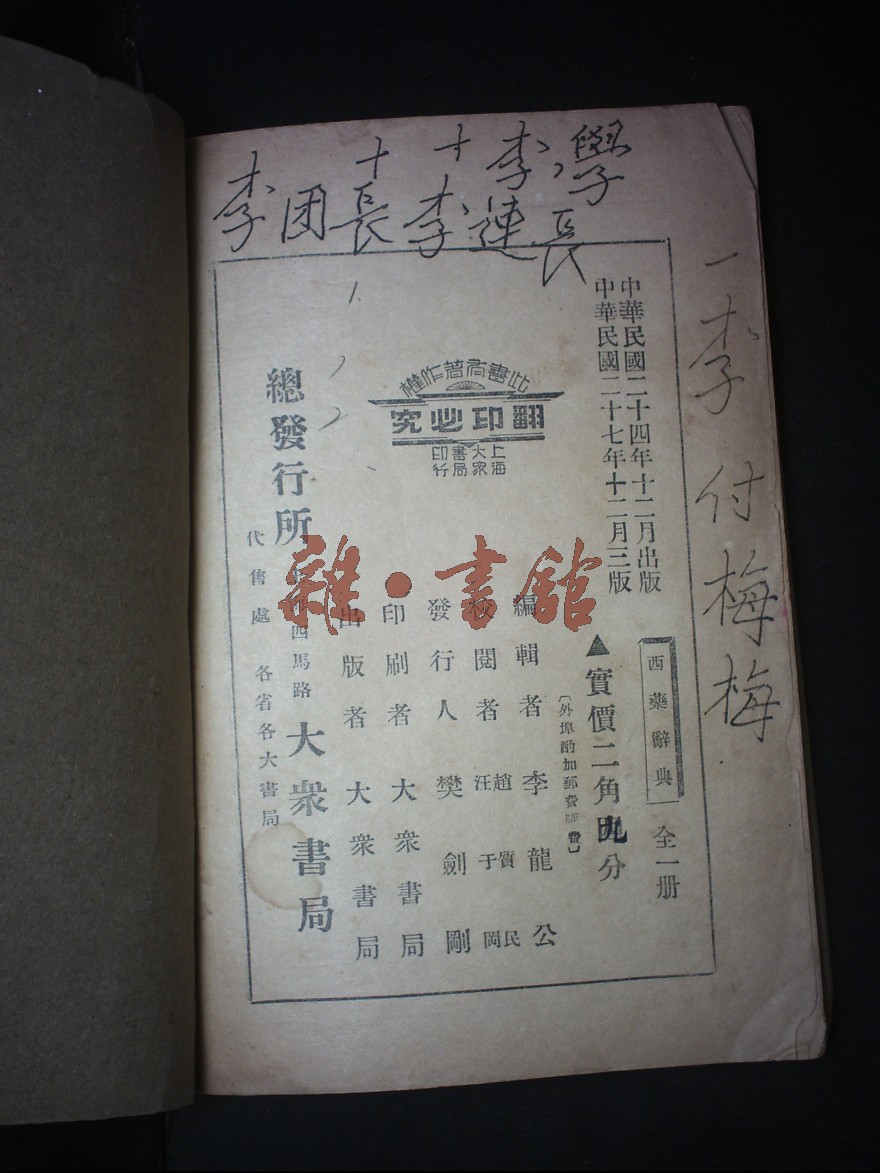 十 十 李 學
李 团 長 李 連 長
一李 付 梅 梅
中華民國二十四年十二月出版
中華民國二十七年十二月三版
西藥辭典 全一册
▲實價二角九分
〔外埠酌加郵費匯費〕
此書有著作權
翻印必究
上海
大眾
書局
印行
編輯者 李龍公
校閱者 趙質民 汪于岡
發行人 樊劍剛
印刷者 大眾書局
出版者 大眾書局
總發行所 四馬路 大眾書局
代售處 各省各大書局
雜·書館